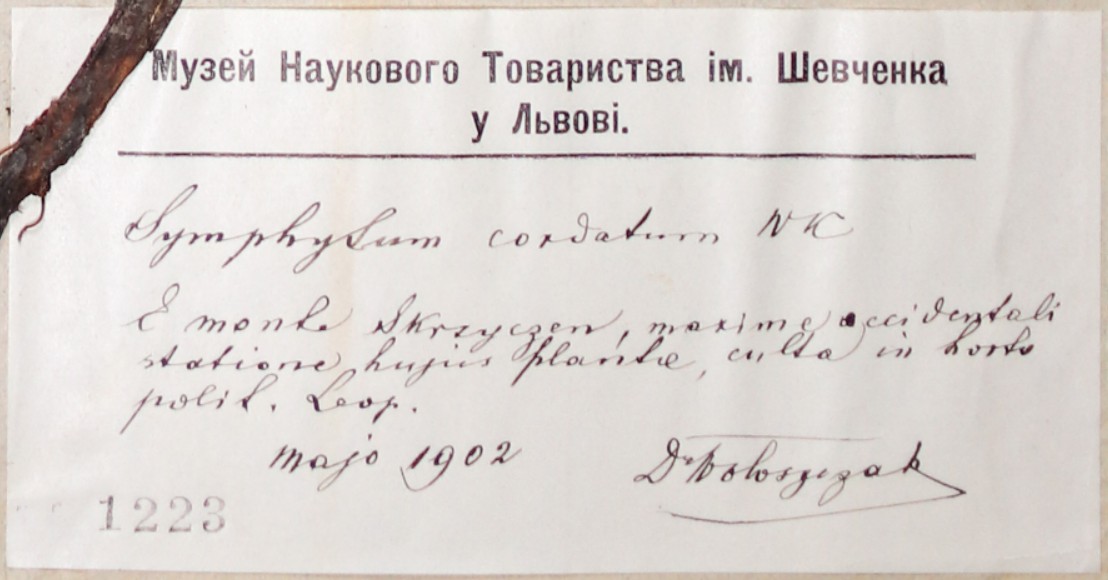 Музей Наукового Товариства ім. Шевченка
у Львові.
Symphytum cordatum WK
E monte Skrzyczen, maxime occidentali
statione hujus plantae, culta in horto
polit. Leop.
majo 1902
Dr Wołoszczak
1223